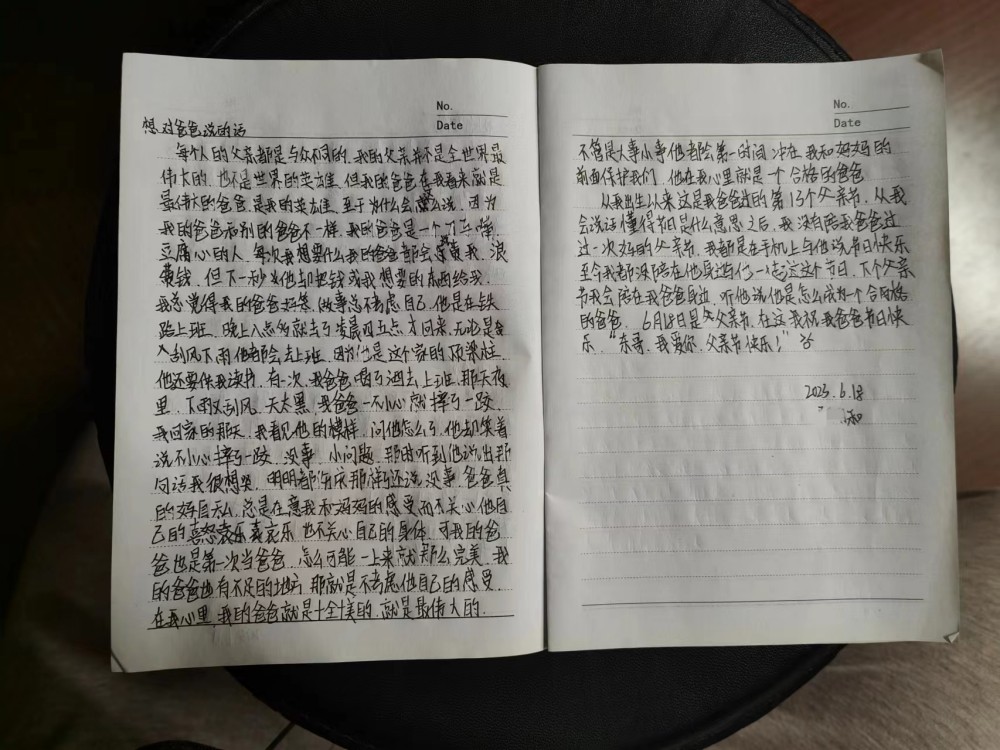 No.
Date
想对爸爸说的话
每个人的父亲都是与众不同的。我的父亲并不是全世界最
伟大的，也不是世界的英雄，但我的爸爸在我看来就是
最伟大的爸爸，是我的英雄，至于为什么会这么说，因为
我的爸爸和别的爸爸不一样，我的爸爸是一个刀子嘴，
豆腐心的人，每次我想要什么我的爸爸都会责黄我，浪
费钱，但下一秒钟他却把钱或我想要的东西给我，
我总觉得我的爸爸好笨，做事总不考虑自己，他是在铁
路上班，晚上八点多就去了凌晨四五点才回来，无论是
刮风下雨他都会去上班，因为他是这个家的顶梁柱，
他还要供我读书，有一次，我爸爸喝了酒去上班，那天夜
里，下雨又刮风，天太黑，我爸爸一不小心就摔了一跤，
我回家的那天，我看见他的模样，问他怎么了，他却笑着
说不小心摔了一跤，没事，小问题，那时听到他说出那
句话我很想哭，明明都伤成那样了还说没事，爸爸真
的好自私，总是在意我和妈妈的感受而不关心他自
己的喜怒哀乐喜哀乐，也不关心自己的身体，可我的爸
爸也是第一次当爸爸，怎么可能一上来就那么完美，我
的爸爸也有不足的地方，那就是不考虑他自己的感受，
在我心里，我的爸爸就是十全十美的，就是最伟大的，
No.
Date
不管是大事小事他都会第一时间冲在我和妈妈的
前面保护我们，他在我心里就是一个合格的爸爸
从我出生以来这是我爸爸过的第13个父亲节，从我
会说话懂得节日是什么意思之后，我没有陪我爸爸过
过一次好的父亲节，我都是在手机上与他说节日快乐
至今我都没陪在他身边与他一起过这个节日，下个父亲
节我会陪在我爸爸身边，听他说他是怎么成为一个合格
的爸爸，6月18日是父亲节，在这我祝我爸爸节日快
乐，"东哥，我爱你，父亲节快乐！"
2023.6.18